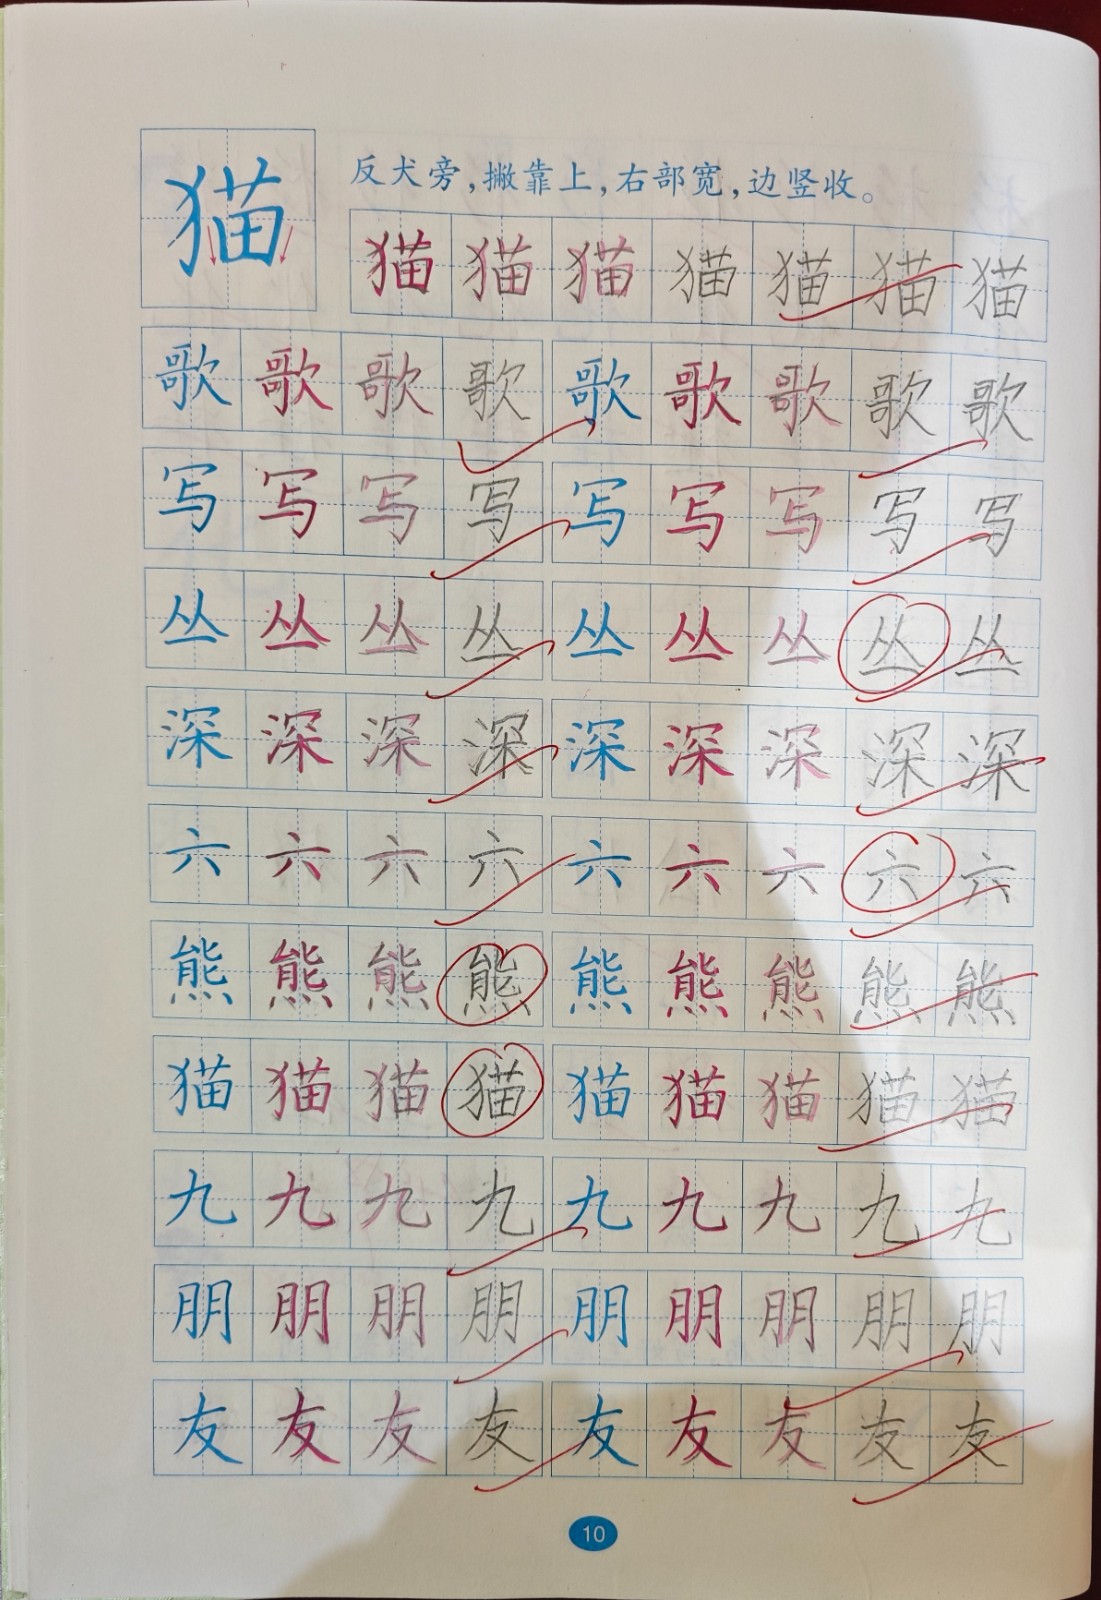 猫
反犬旁，撇靠上，右部宽，边竖收。
猫猫猫猫猫猫猫
歌歌歌歌歌歌歌歌歌
写写写写写写写写写
丛丛丛丛丛丛丛丛丛
深深深深深深深深深
六六六六六六六六六
熊熊熊熊熊熊熊熊熊
猫猫猫猫猫猫猫猫猫
九九九九九九九九九
朋朋朋朋朋朋朋朋朋
友友友友友友友友友
10